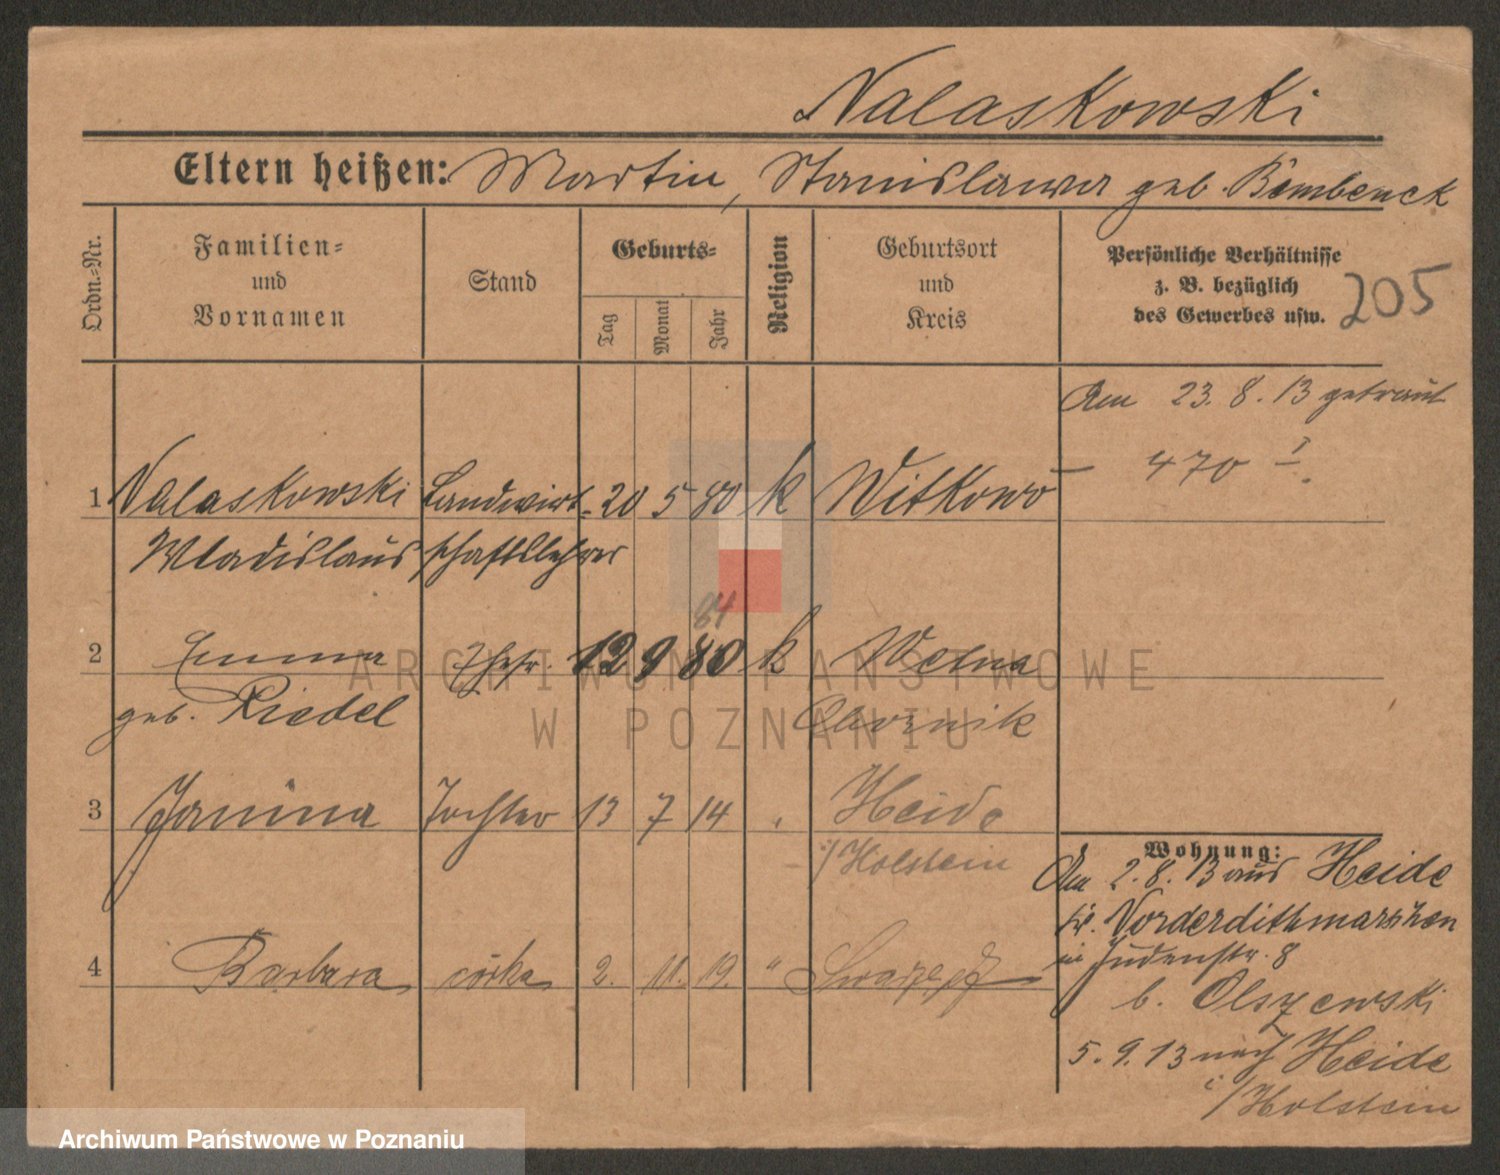 Nalaskowski
Eltern heißen: Martin, Stanislawa geb. Bembenek
Ordn.=Nr.
Familien=
und
Vornamen
Stand
Geburts=
Tag
Monat
Jahr
Religion
Geburtsort
und
Kreis
Persönliche Verhältnisse
z. B. bezüglich
des Gewerbes usw.
205
Am 23. 8. 13 getraut
1 Nalaskowski Landwirt= 20 5 80 k Witkowo — 470 I
Wladislaus schaftslehrer
84
2 Emma Ehefr. 12 9 80 k Welna
geb. Riedel Obornik
3 Janina Tochter 13 7 14 " Heide
i/Holstein
4 Barbara córka 2. 11. 19. "
Wohnung:
Am 2. 8. 13 aus Heide
kr. Vorderdithmarschen
in Judenstr. 8
b. Olszewski
5. 9. 13 nach Heide
i/Holstein
ARCHIWUM PAŃSTWOWE
W POZNANIU
Archiwum Państwowe w Poznaniu